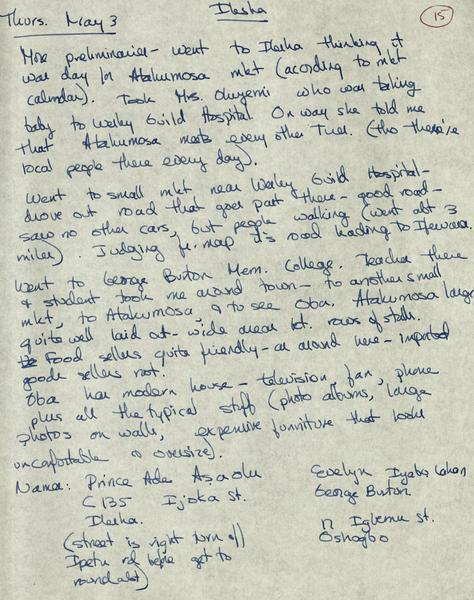 Thurs. May 3
Ilesha
15
More preliminaries - went to Ilesha thinking it
was day for Atakumosa mkt (acording to mkt
calendar). Took Mrs. Oluyemi who was taking
baby to Wesley Guild Hospital On way she told me
that Atakumosa meets every other Tues. (tho there're
local people there every day).
Went to small mkt near Wesley Guild Hospital -
drove out road that goes past there - good road -
saw no other cars, but people walking (went abt 3
miles). Judging fr. map it's road leading to Ifewara.
Went to George Burton Mem. College. Teacher there
& student took me around town - to another small
mkt, to Atakumosa, & to see Oba. Atakumosa large
quite well laid out - wide areas bt. rows of stalls.
Food sellers quite friendly - as around here - imported
goods sellers not.
Oba has modern house - television, fan, phone
plus all the typical stuff (photo albums, large
photos on walls, expensive furniture that looks
uncomfortable & oversize).
Names: Prince Ade Asaolu
C 135 Ijoka St.
Ilesha.
(street is right turn off
Ipetu rd before get to
roundabt)
Evelyn
George Burton
17 Igbemu St.
Oshogbo